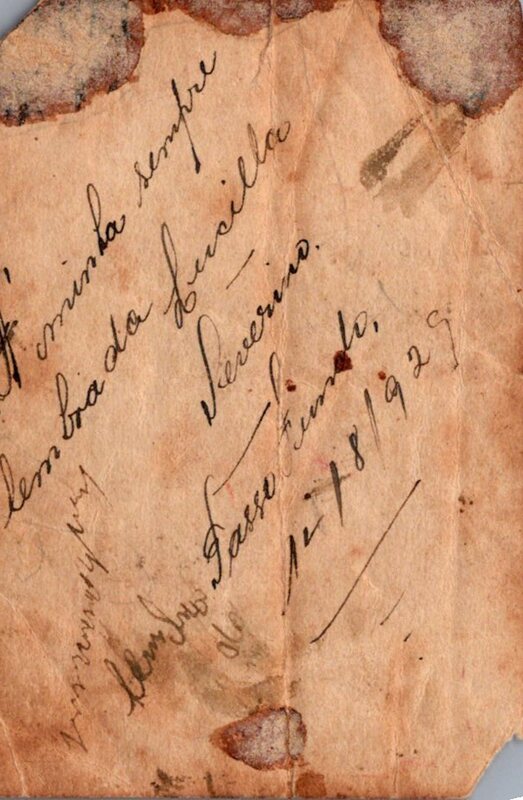 Á minha sempre
lembrada Lucilla
Severino.
Passo Fundo,
12/8/929